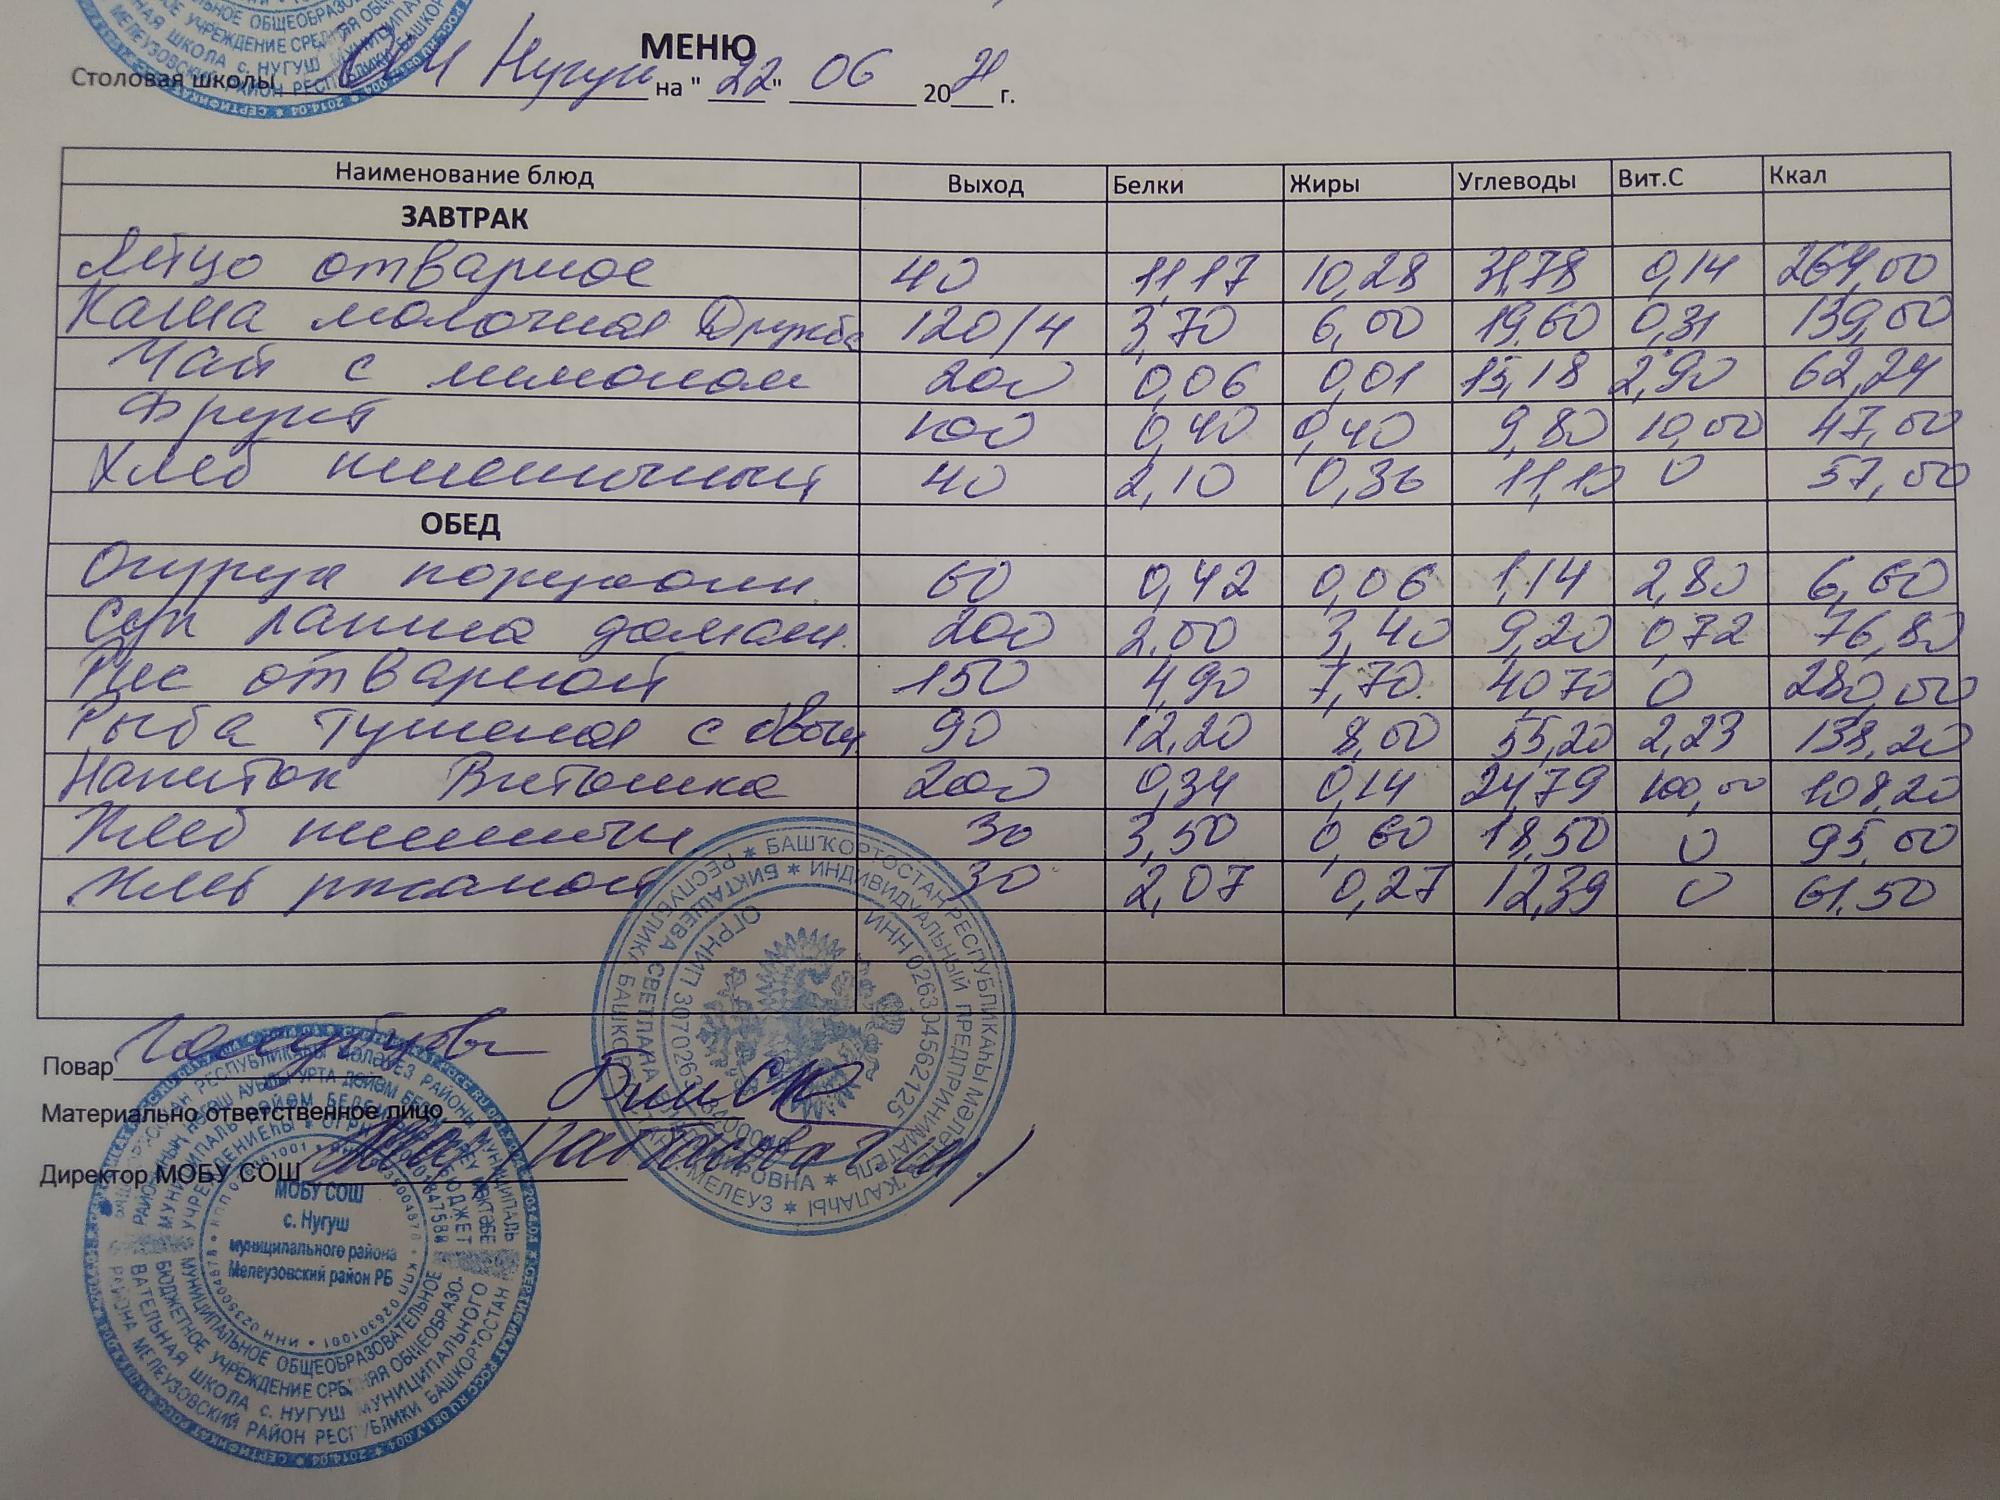 МЕНЮ
Столовая школы Нугуш на "22" 06 2021 г.
Наименование блюд Выход Белки Жиры Углеводы Вит.С Ккал
ЗАВТРАК
Яйцо отварное 40 11,17 10,28 31,78 0,14 264,00
Каша молочная Дружба 120/4 3,70 6,00 19,60 0,31 139,00
Чай с лимоном 200 0,06 0,01 15,18 2,90 62,24
Фрукт 100 0,40 0,40 9,80 10,00 47,00
Хлеб пшеничный 40 2,10 0,36 11,10 0 57,00
ОБЕД
Огурцы порционн. 60 0,42 0,06 1,14 2,80 6,60
Суп лапша домаш. 200 2,00 3,40 9,20 0,72 76,80
Рис отварной 150 4,90 7,70 40,70 0 280,00
Рыба тушеная с овощ. 90 12,20 8,00 55,20 2,23 138,20
Напиток Витошка 200 0,34 0,14 24,79 100,00 108,20
Хлеб пшеничн 30 3,50 0,60 18,50 0 95,00
Хлеб ржаной 30 2,07 0,27 12,39 0 61,50
Повар
Материально ответственное лицо
Директор МОБУ СОШ
МОБУ СОШ
с. Нугуш
муниципального района
Мелеузовский район РБ